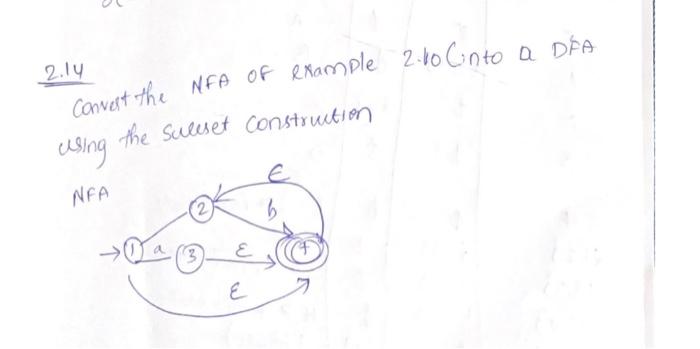 2.14
Convert the NFA OF example 2.10 (into a DFA
using the suleset construction
NFA
ε
2
b
1
a
3
ε
4
ε